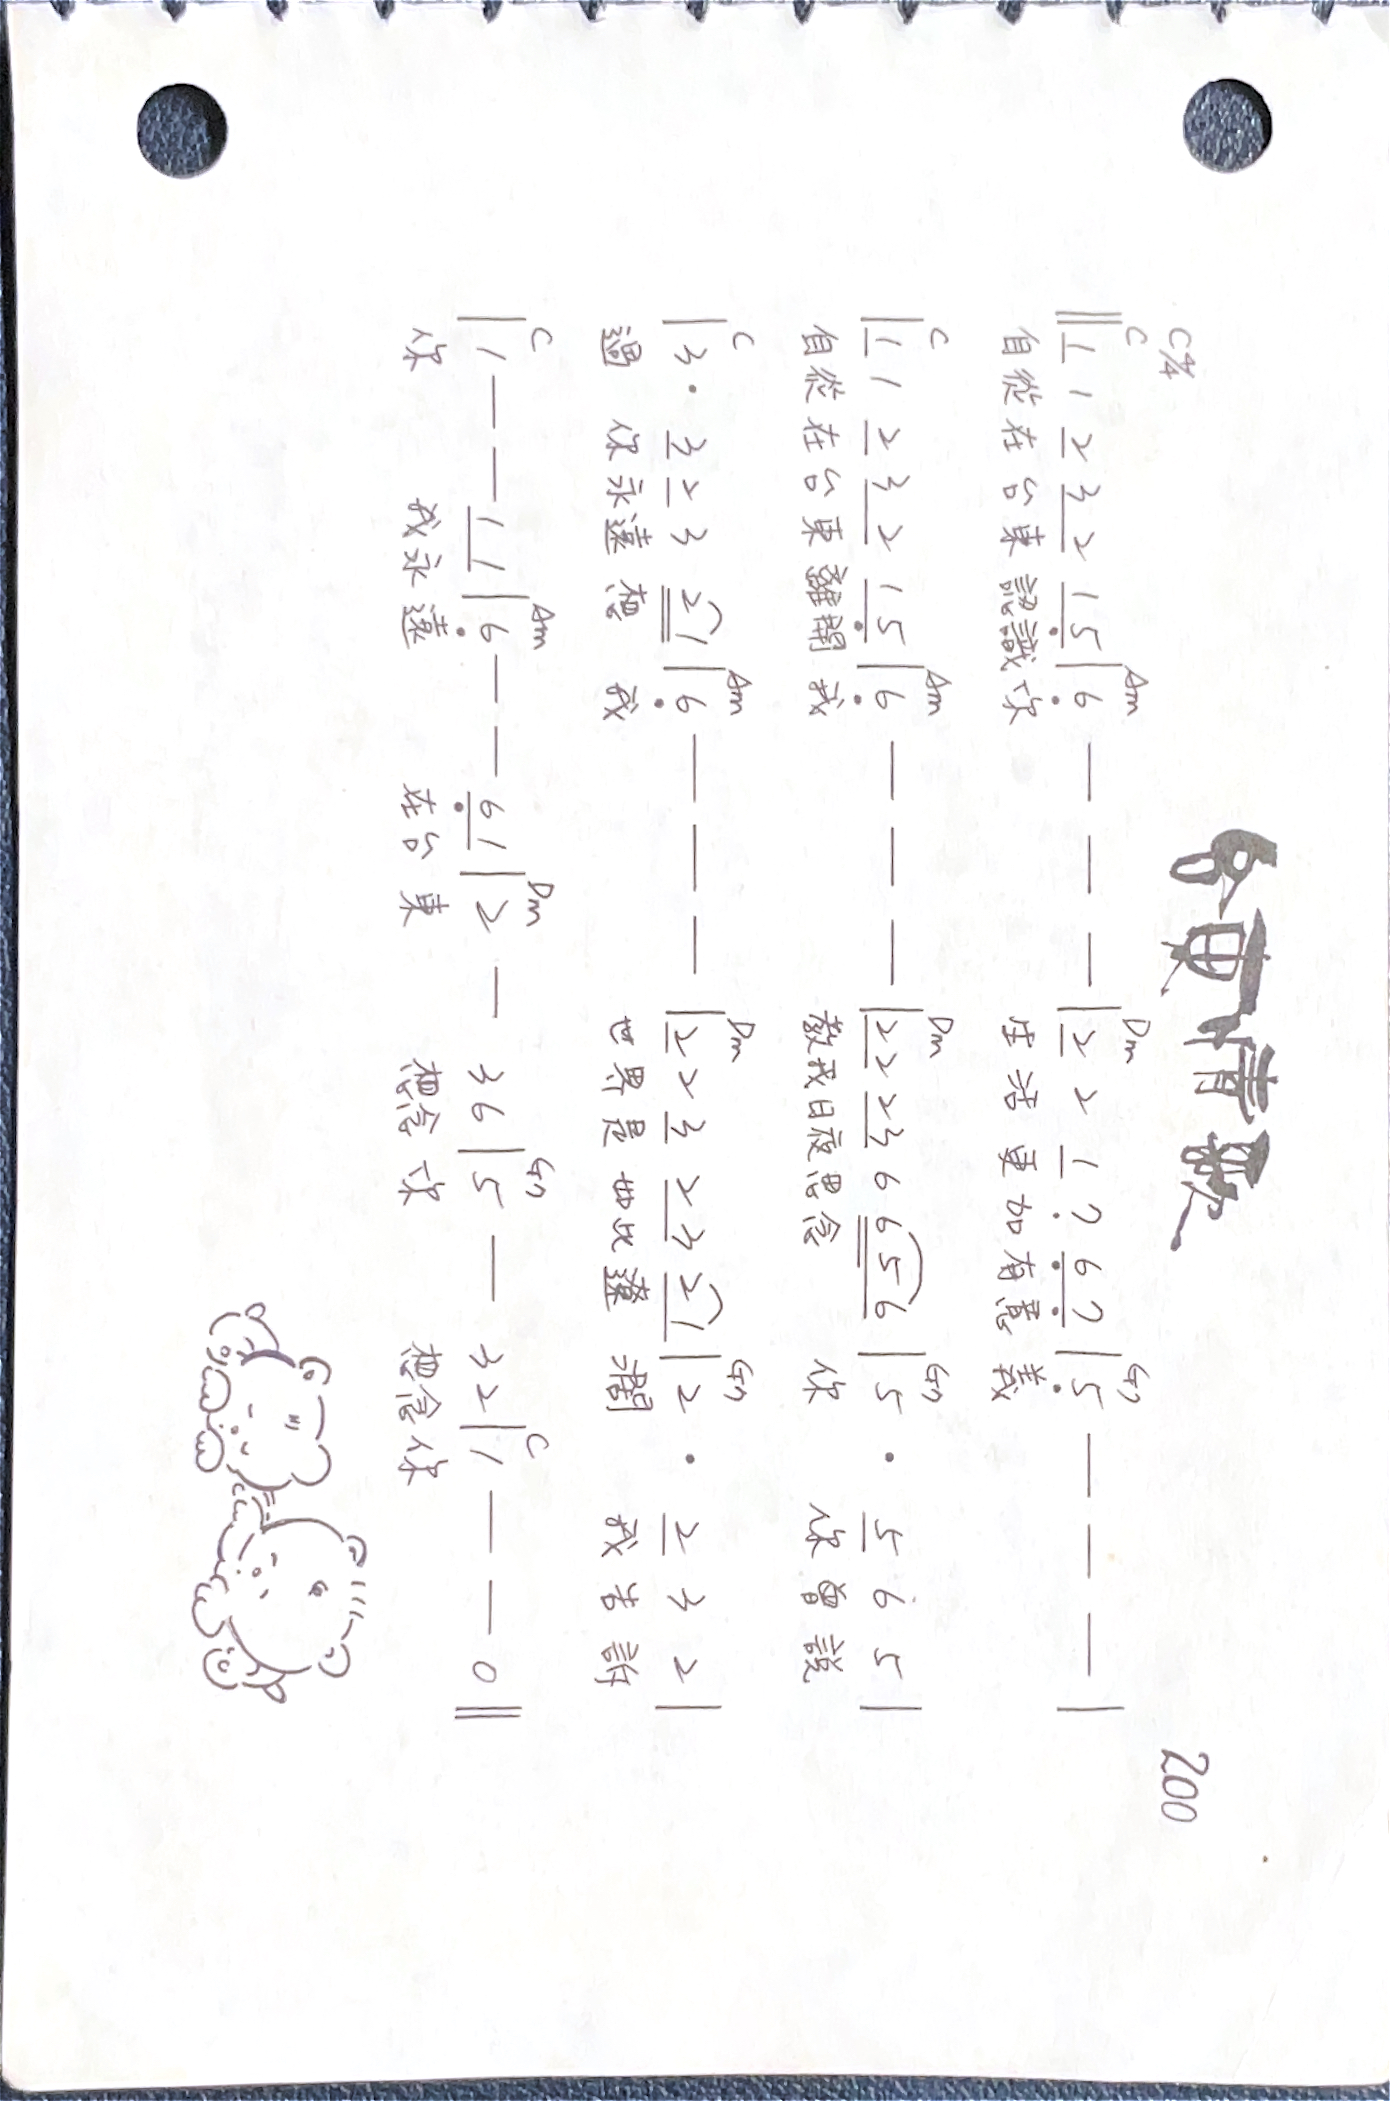 台東情歌
200
C 4/4
C Am Dm G7
‖1 1 2 3 2 1 5|6 — — —|2 2 1 7 6 7|5 — — —|
自從在台東認識你 生活更加有意義
C Am Dm G7
|1 1 2 3 2 1 5|6 — — —|2 2 2 3 6 6 5 6|5 · 5 6 5|
自從在台東離開我 教我日夜思念 你 你曾說
C Am Dm G7
|3 · 3 2 3 2 1|6 — — —|2 2 3 2 3 2 1|2 · 2 3 2|
過 你永遠想 我 世界是如此遼闊 我告訴
C Am Dm G7 C
|1 — — 1 1|6 — — 6 1|2 — 3 6|5 — 3 2|1 — — 0‖
你 我永遠 在台東 想念你 想念你